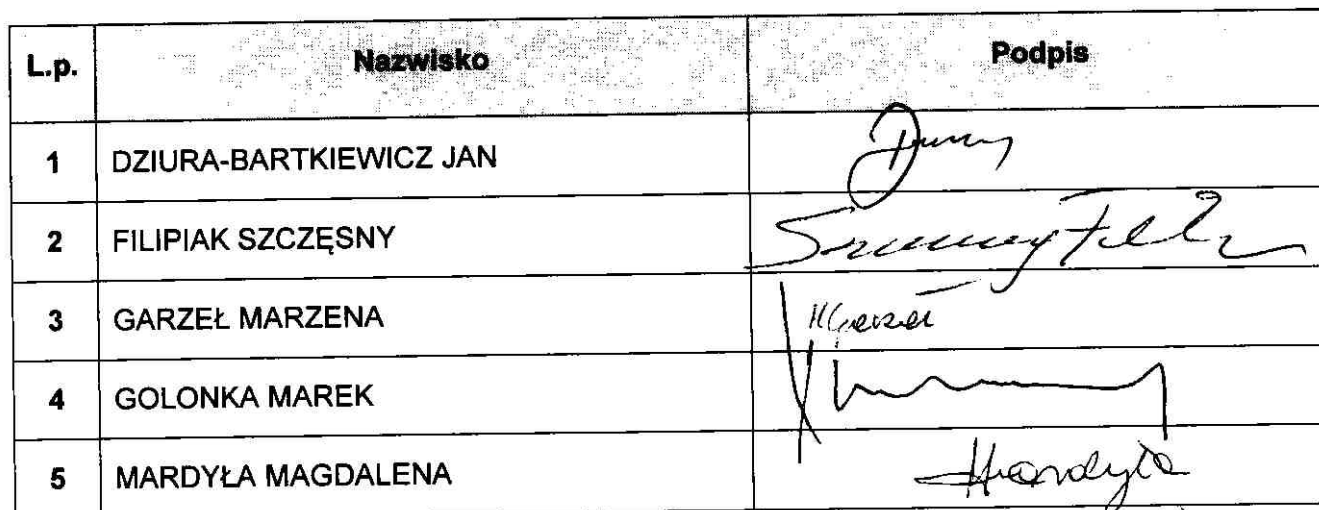 L.p. Nazwisko Podpis
1 DZIURA-BARTKIEWICZ JAN
2 FILIPIAK SZCZĘSNY
3 GARZEŁ MARZENA
4 GOLONKA MAREK
5 MARDYŁA MAGDALENA Mardyła